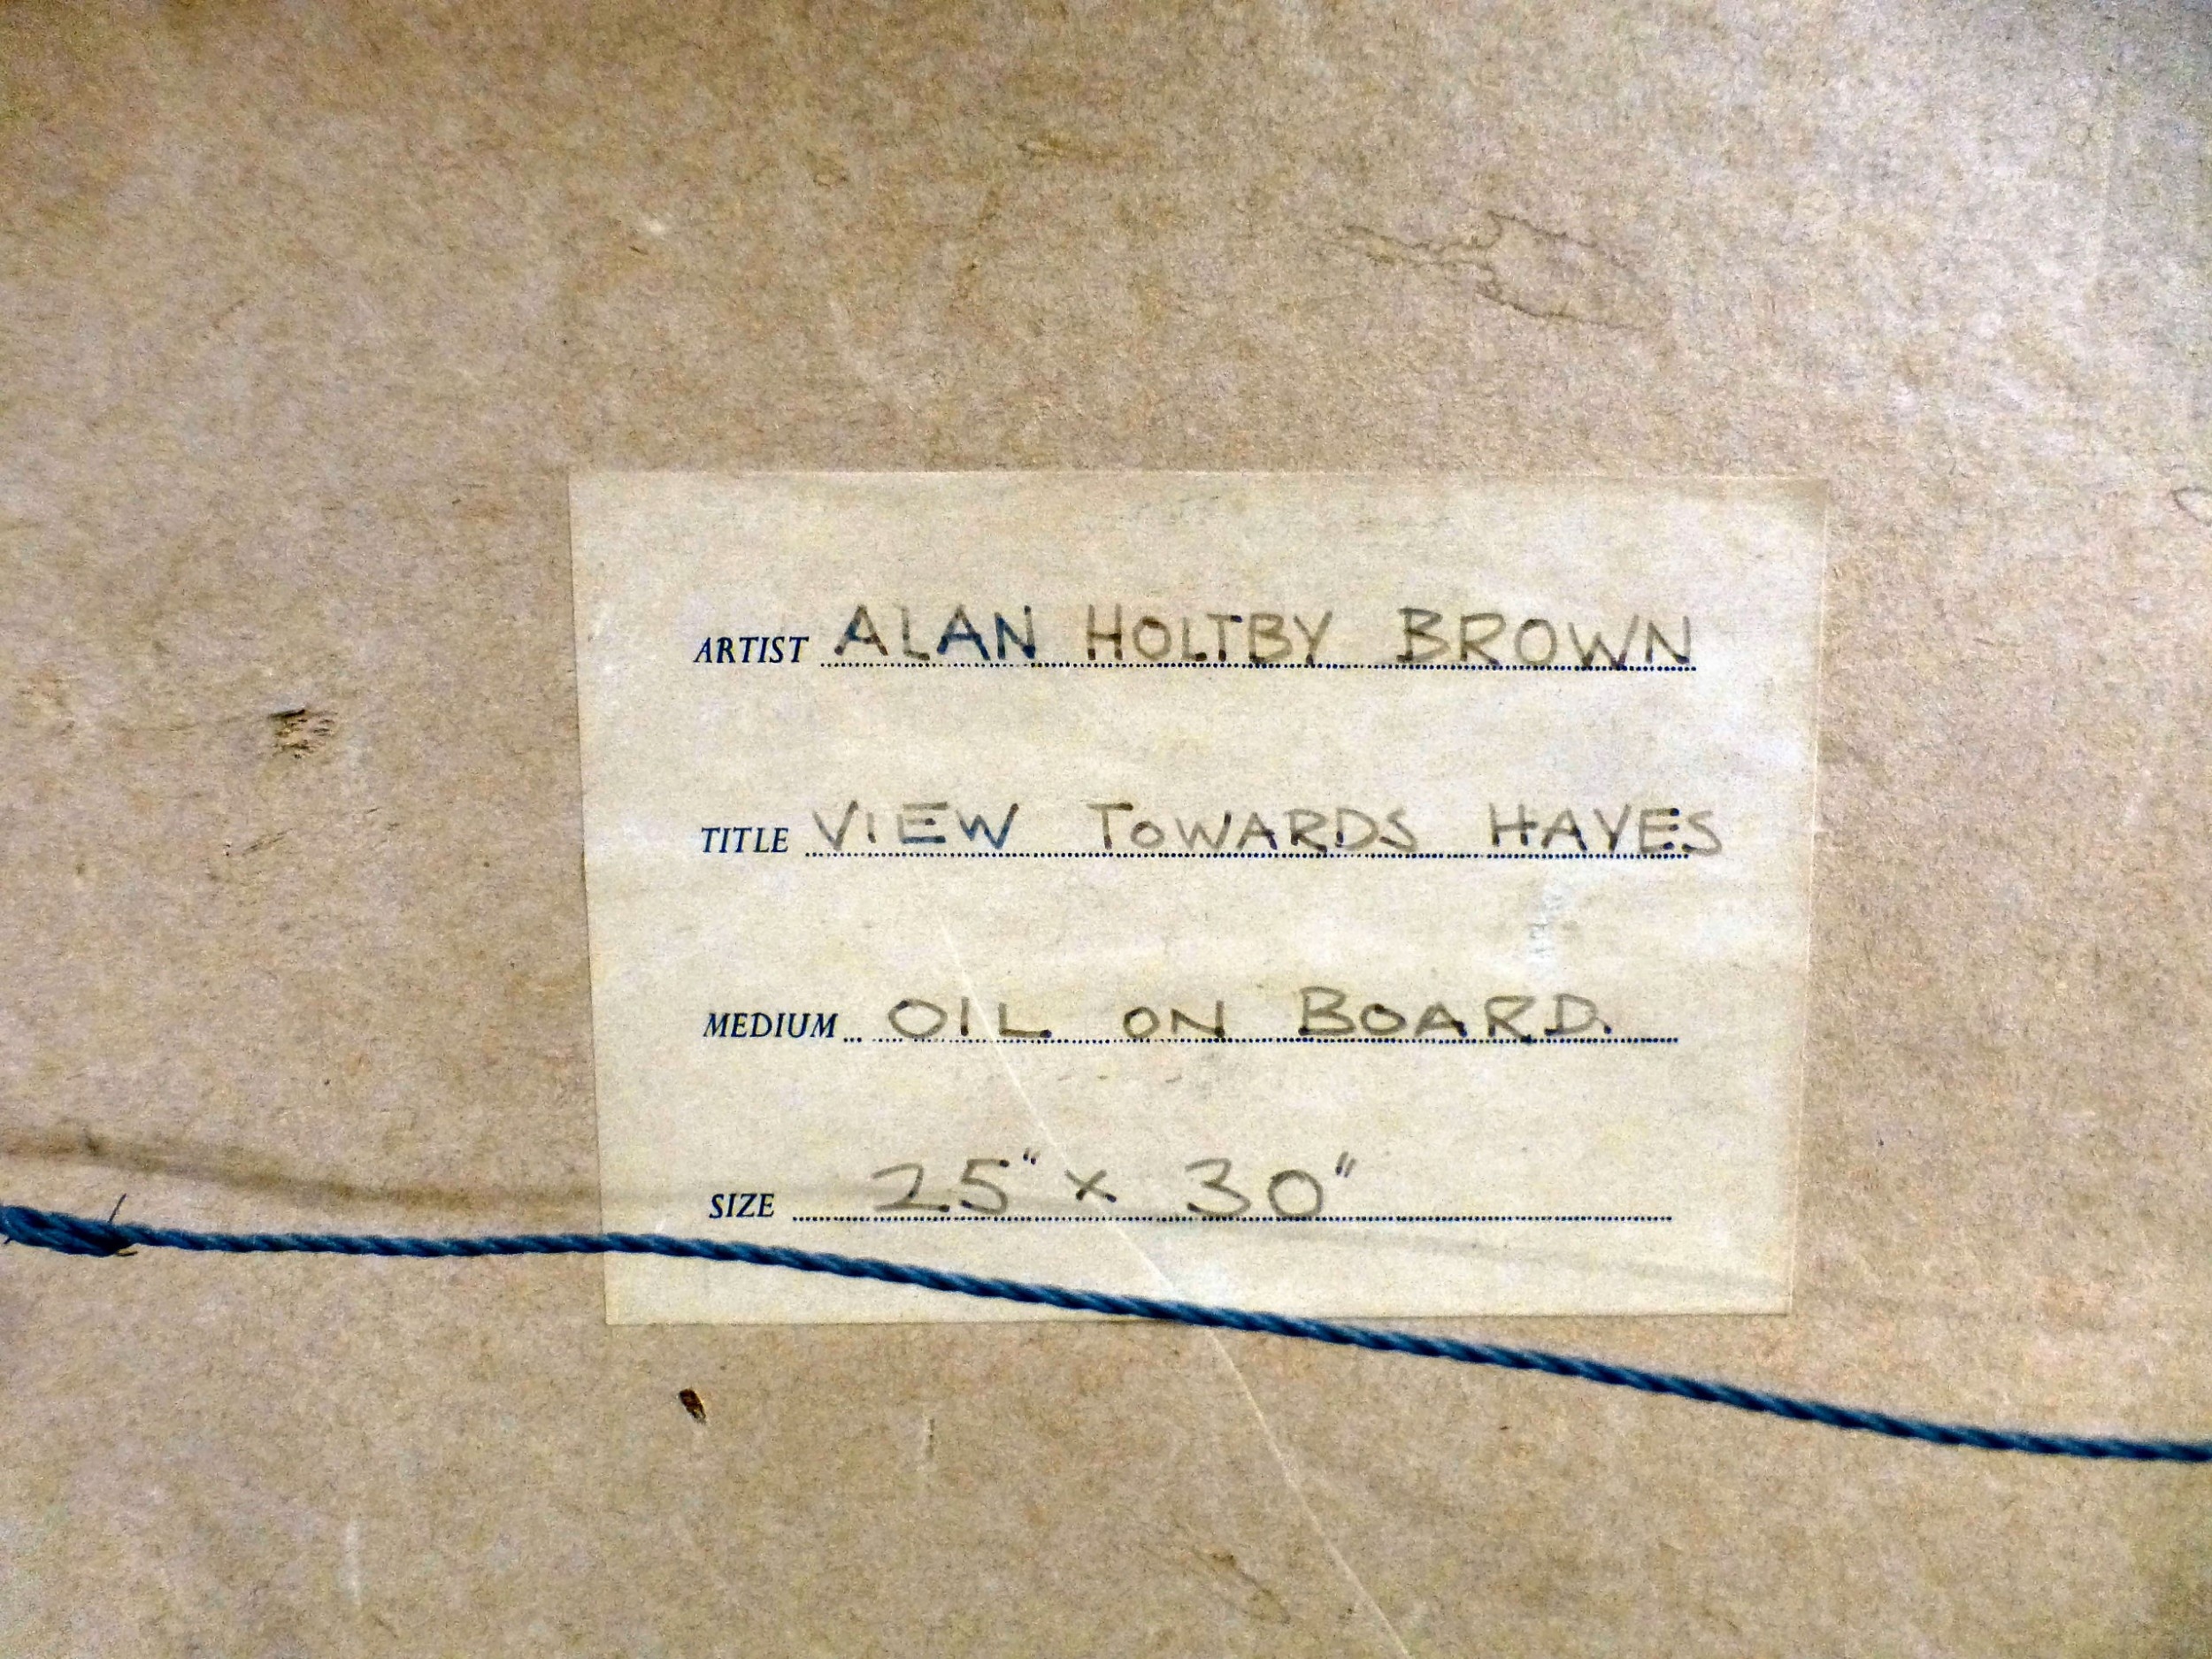 ARTIST ALAN HOLTBY BROWN
TITLE VIEW TOWARDS HAYES
MEDIUM OIL ON BOARD.
SIZE 25" x 30"